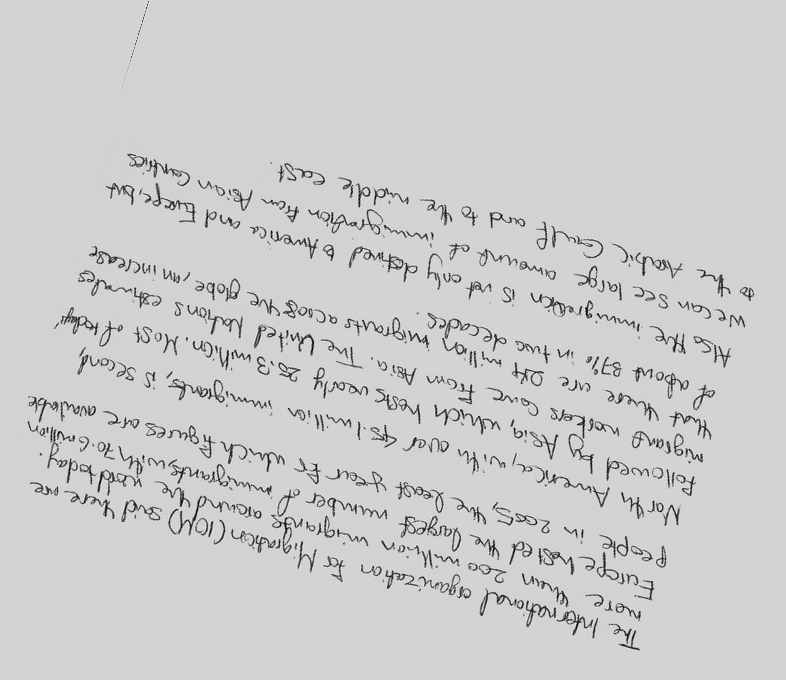 The International organization for Migration (IOM) said there are
more than 200 million migrants around the world today.
Europe hosted the largest number of immigrants, with 70.6 million
people in 2005, the least year for which figures are available
North America, with over 45.1 million immigrants, is second,
followed by Asia, which hosts nearly 25.3 million. Most of today's
migrant workers come from Asia. The United Nations estimales
that there are 214 million migrants across the globe, an increase
of about 37% in two decades.
Also the immigration is not only defined to America and Europe, but
we can see large amount of immigration from Asian cantries
to the Arabic Gaulf and to the middle east.